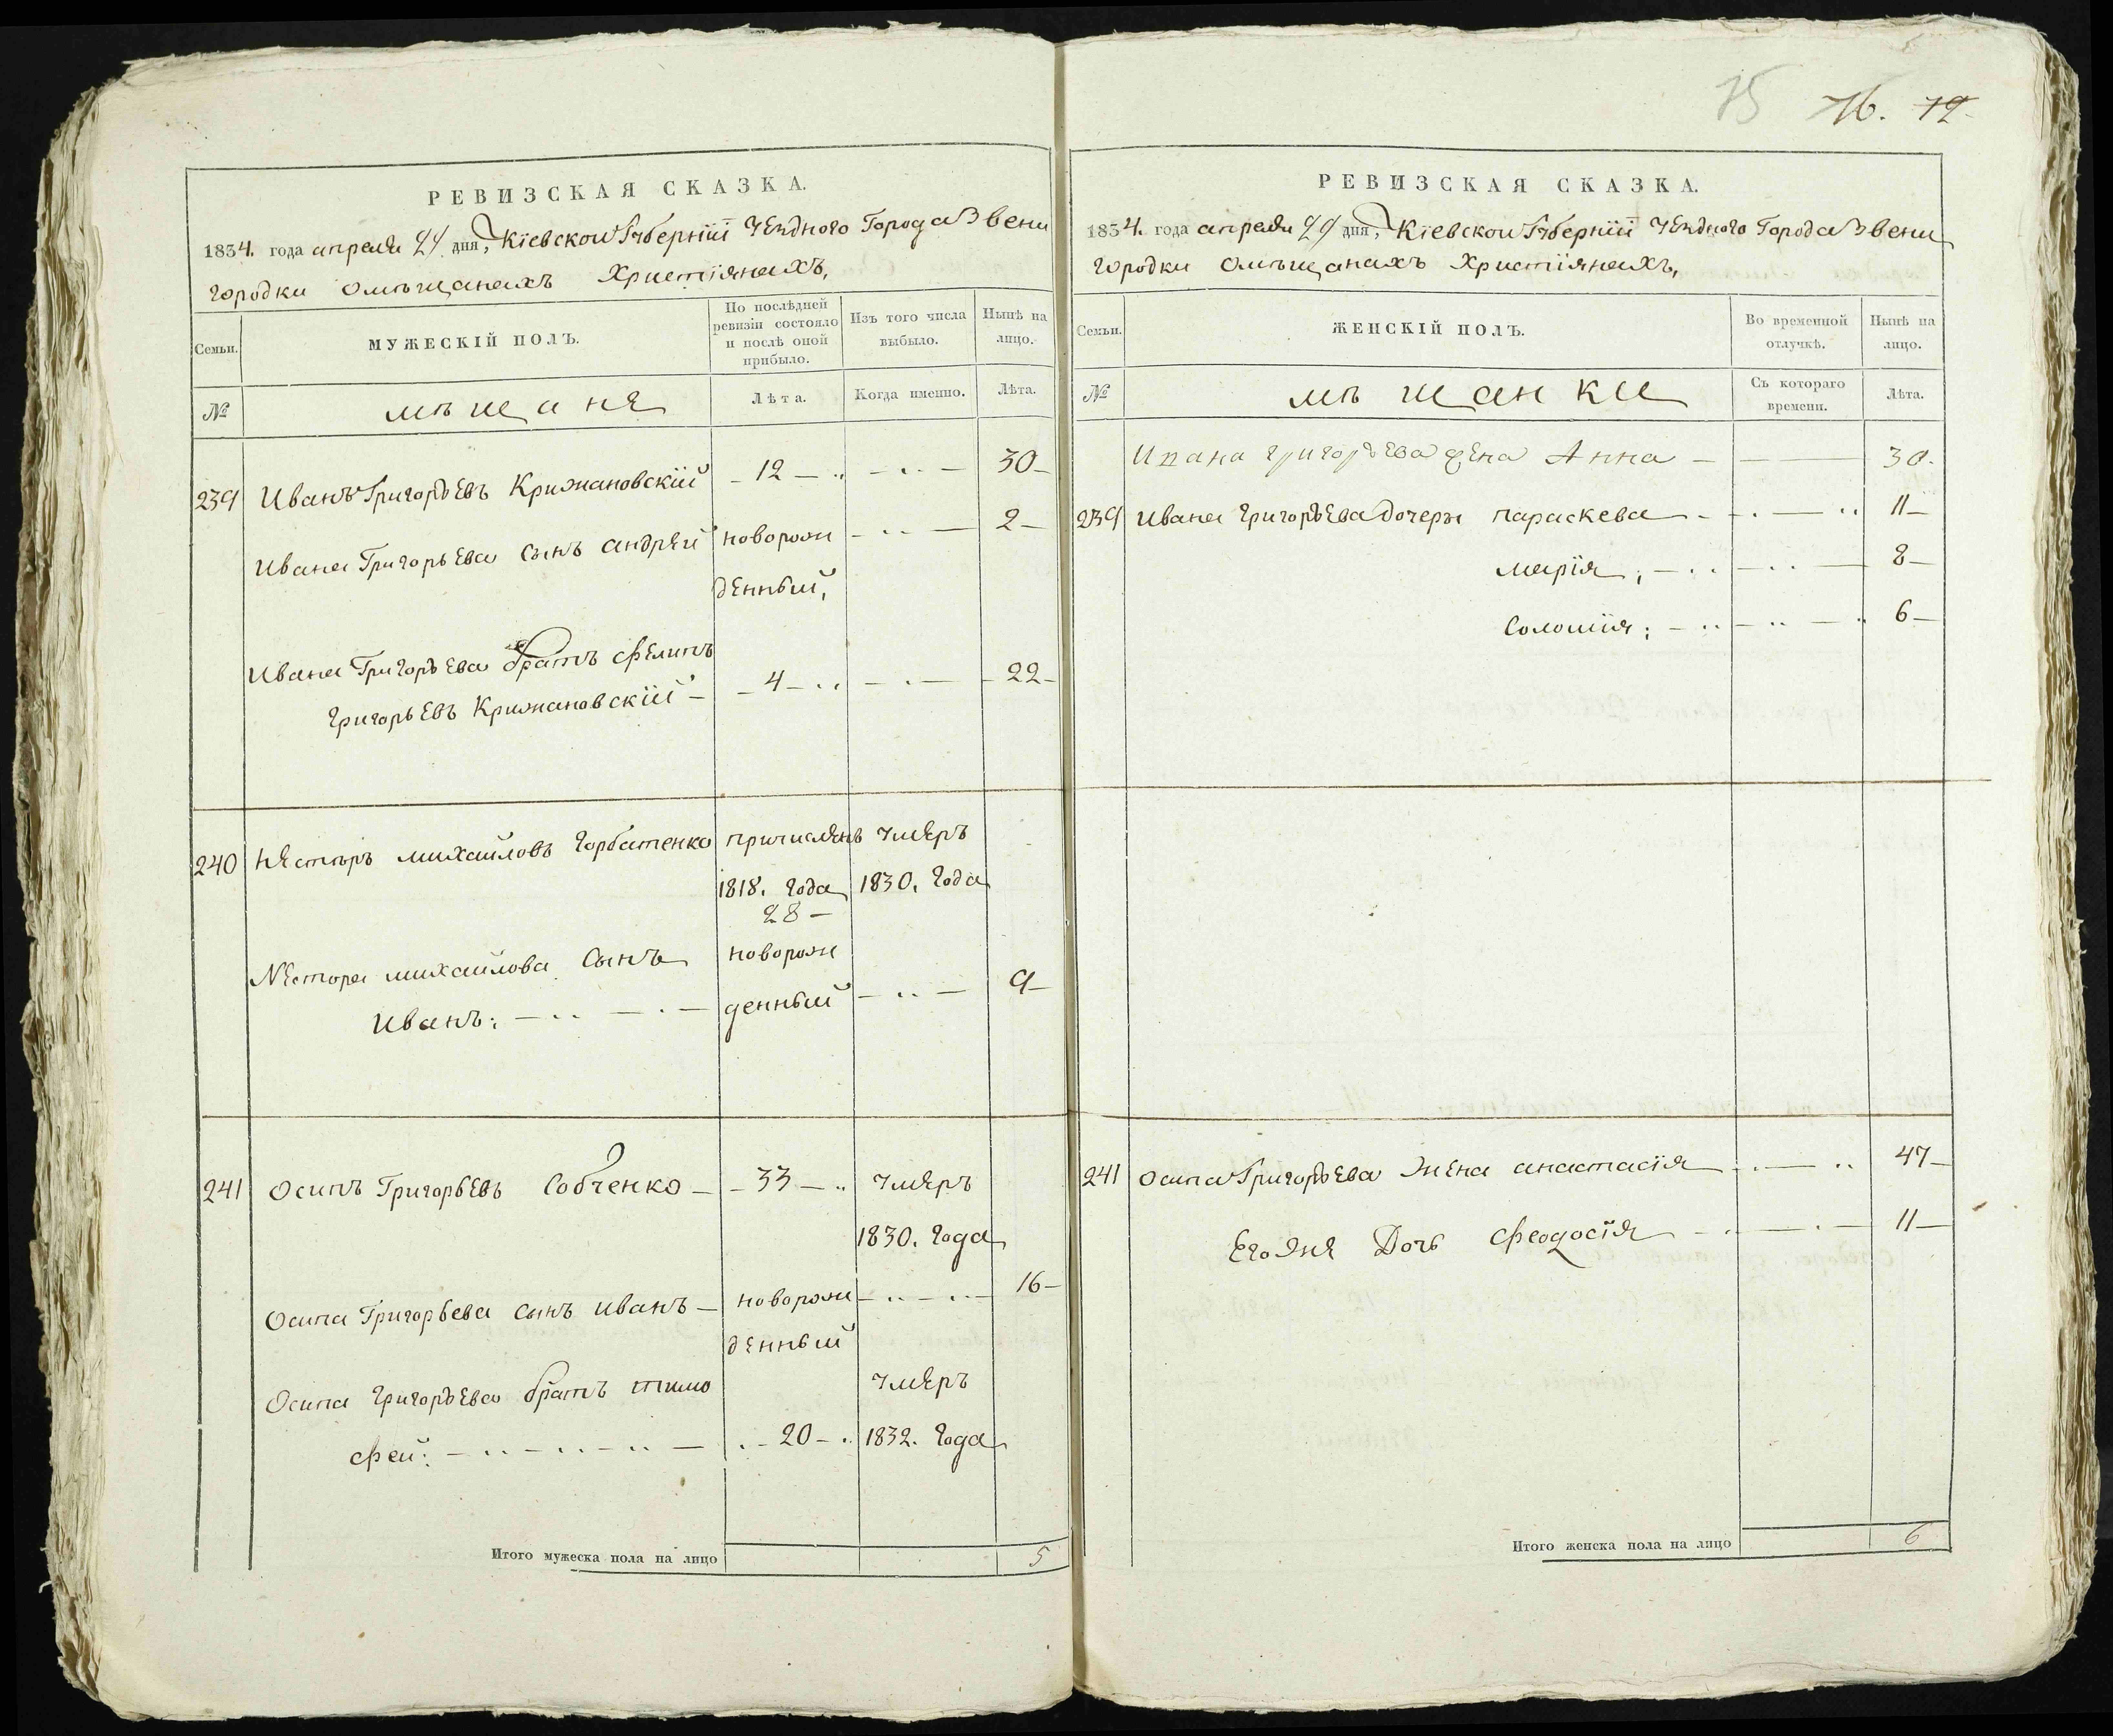 РЕВИЗСКАЯ СКАЗКА.
1834. года апреля дня, Кіевской Губерніи Уезднаго Города Звени
городки омѣщанахъ Христіянахъ,
Семьи.
МУЖЕСКІЙ ПОЛЪ.
По послѣдней ревизіи состояло и послѣ оной прибыло.
Изъ того числа выбыло.
Нынѣ на лицо.
№
мѣщане
Лѣта.
Когда именно.
Лѣта.
239 Иванъ Григорьевъ Крижановскій - 12 - 30-
Ивана Григорьева сынъ андрей новорож 2-
денный,
Ивана Григорьева братъ Филипъ
григорьевъ Крижановскій - - 4 - - 22-
240 Нестеръ михайловъ Горбатенко причисленъ умеръ
1818. года 1830. года
28-
Нестора михайлова Сынъ новорож
Иванъ: денный 9-
241 Осипъ Григорьевъ Собченко - - 33 - умеръ
1830. года
Осипа Григорьева сынъ иванъ - новорож 16-
денный
Осипа григорьева братъ тимо умеръ
фей: - 20 - 1832. года
Итого мужеска пола на лицо 5
75 76. 79
РЕВИЗСКАЯ СКАЗКА.
1834. года апреля дня, Кіевской Губерніи Уезднаго Города Звени
городки омѣщанахъ Христіянахъ,
Семьи.
ЖЕНСКІЙ ПОЛЪ.
Во временной отлучкѣ.
Нынѣ на лицо.
№
мѣщанки
Съ котораго времени.
Лѣта.
Ивана григорьева жена Анна - 30.
239 Ивана григорьева дочери параскева - 11-
марія; 8-
Соломія; 6-
241 Осипа Григорьева жена анастасія 47-
Его Дочь Феодосія 11-
Итого женска пола на лицо 6